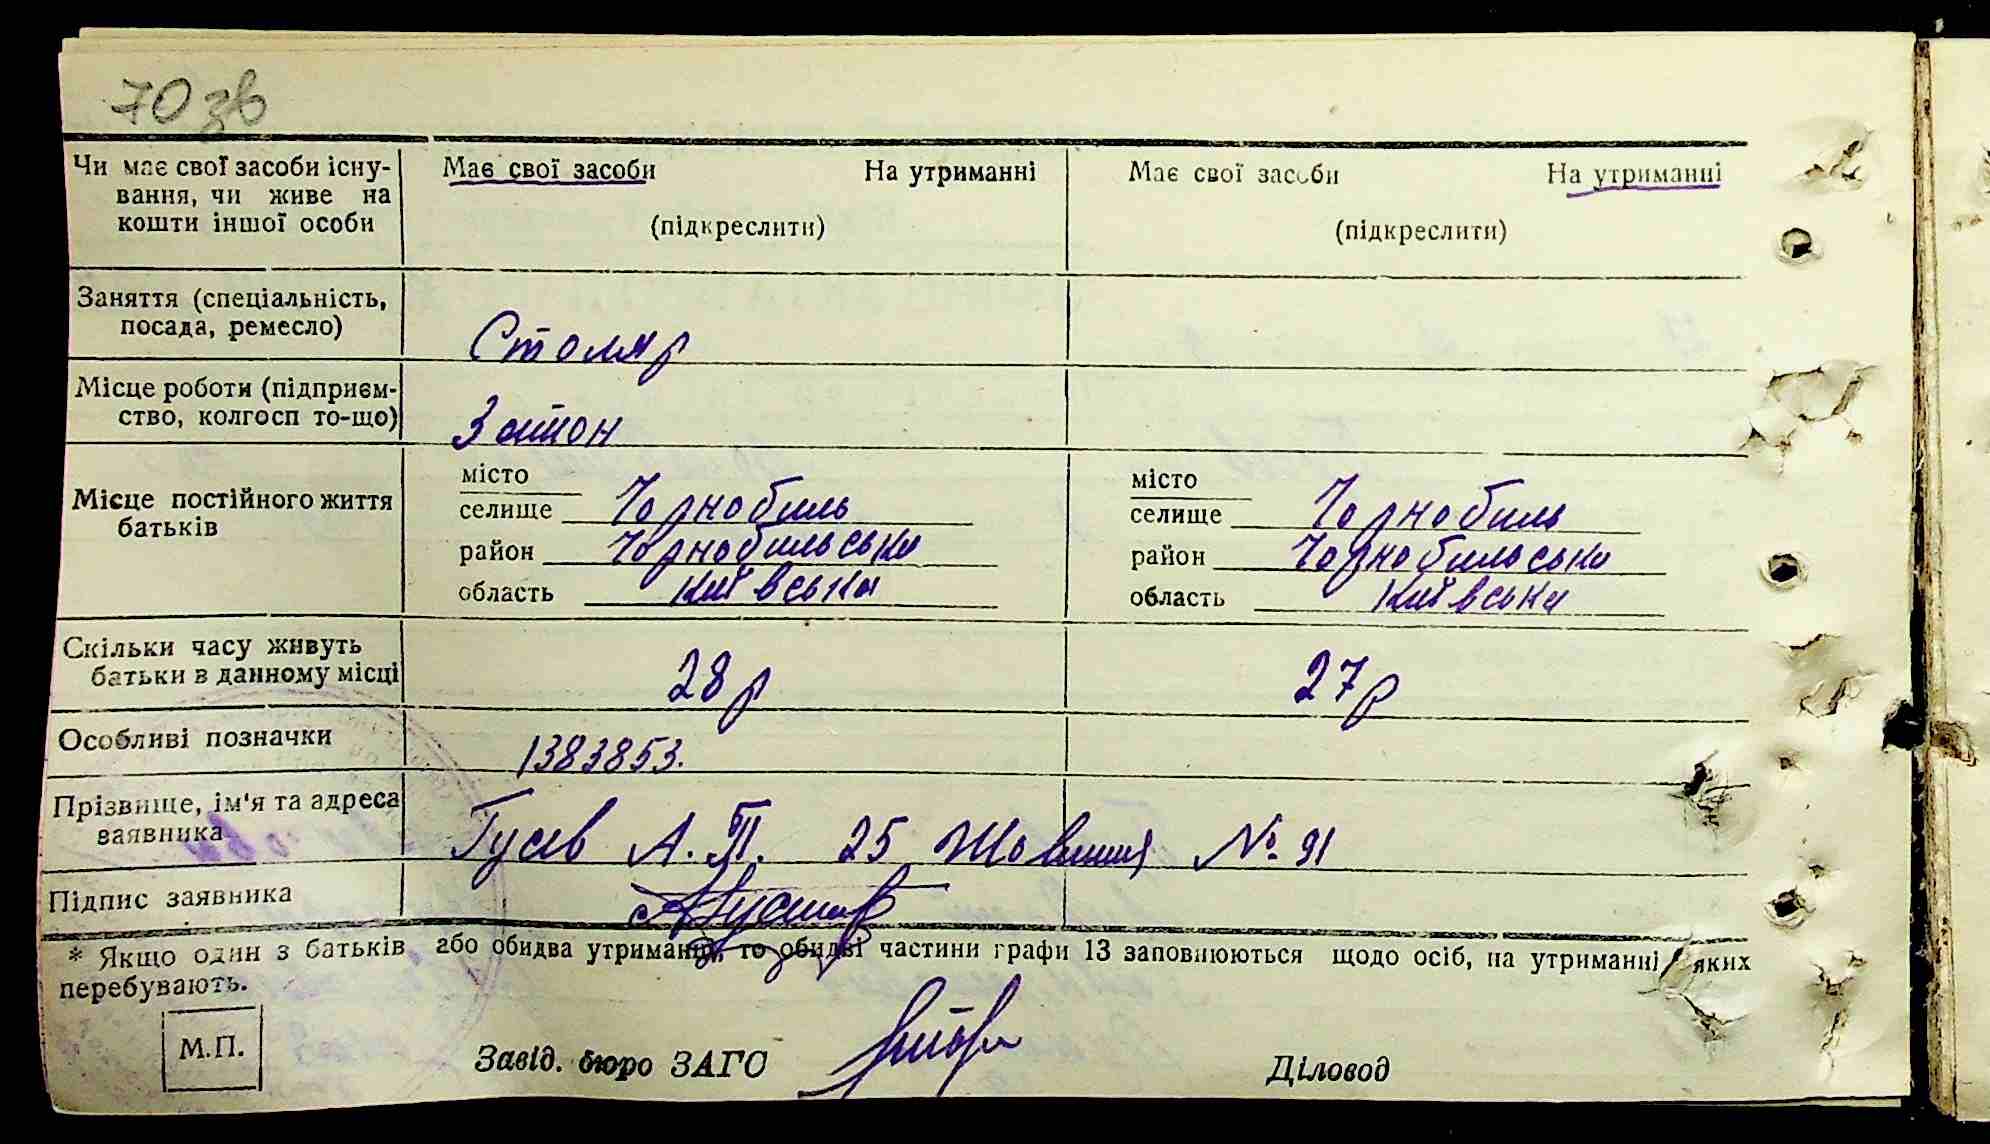 70 зв
Чи має свої засоби існу-
вання, чи живе на
кошти іншої особи
Має свої засоби На утриманні
(підкреслити)
Має свої засоби На утриманні
(підкреслити)
Заняття (спеціальність,
посада, ремесло)
Столяр
Місце роботи (підприєм-
ство, колгосп то-що)
Затон
Місце постійного життя
батьків
місто
селище Чорнобиль
район Чорнобильськи
область Київська
місто
селище Чорнобиль
район Чорнобильськи
область Київська
Скільки часу живуть
батьки в данному місці
28 р
27 р
Особливі позначки
1383853.
Прізвище, ім'я та адреса
заявника
Гусєв А. П. 25 Жовтня № 91
Підпис заявника
* Якщо один з батьків або обидва утриманці, то обидві частини графи 13 заповнюються щодо осіб, на утриманні яких
перебувають.
М.П.
Завід. бюро ЗАГС
Діловод